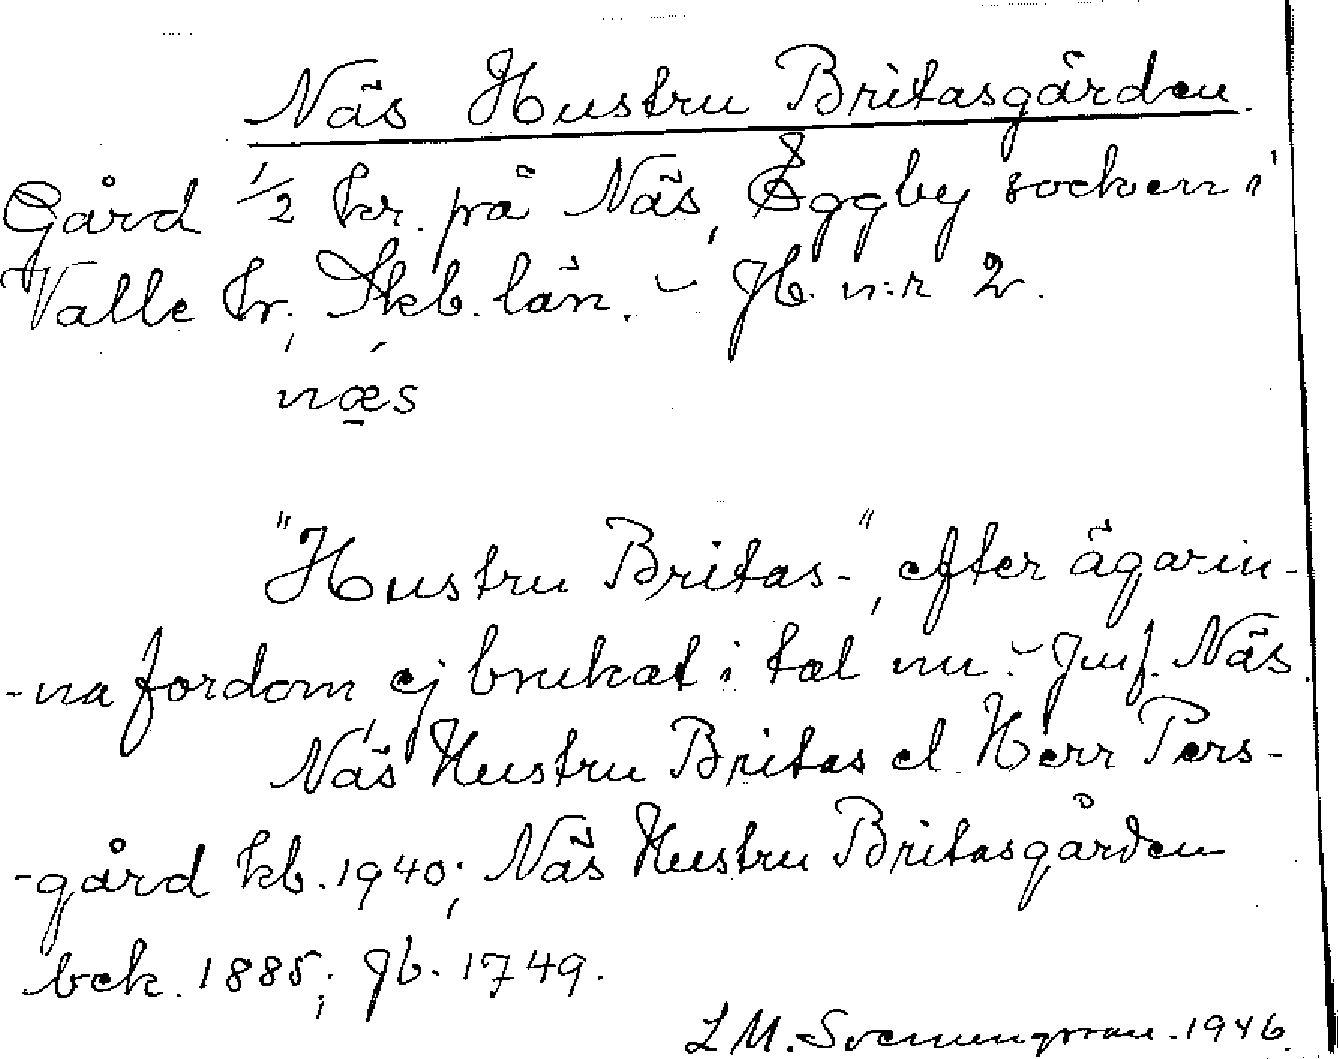 Näs Hustru Britasgården.
Gård 1/2 kr. på Näs, Eggby socken i
Valle hr, Skb. län. - Jb. n:r 2.
næs
"Hustru Britas-", efter ägarin-
-na fordom, ej brukat i tal nu. - Jmf. Näs.
Näs Hustru Britas el. Herr Pers-
-gård kb. 1940; Näs Hustru Britasgården
bek. 1885; Jb. 1749.
L M. Svenungsson. 1946.